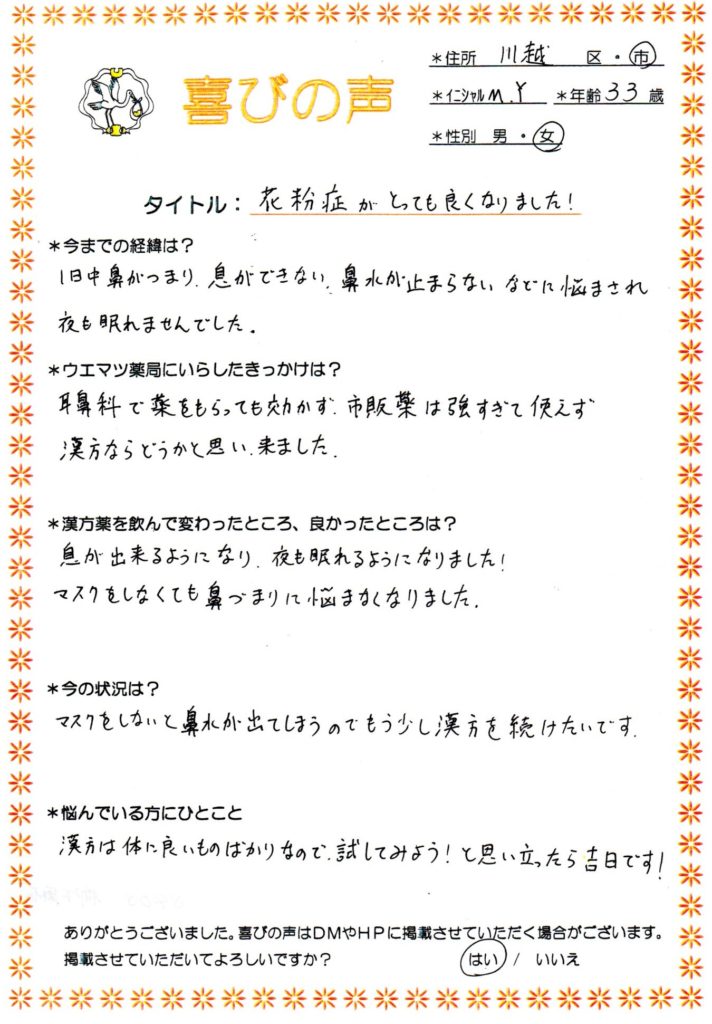 喜びの声
*住所 川越 区・市
*イニシャル M.Y *年齢 33 歳
*性別 男・女
タイトル: 花粉症がとっても良くなりました!
*今までの経緯は?
1日中鼻がつまり、息ができない、鼻水が止まらないなどに悩まされ
夜も眠れませんでした。
*ウエマツ薬局にいらしたきっかけは?
耳鼻科で薬をもらっても効かず、市販薬は強すぎて使えず
漢方ならどうかと思い、来ました。
*漢方薬を飲んで変わったところ、良かったところは?
息が出来るようになり、夜も眠れるようになりました!
マスクをしなくても鼻づまりに悩まなくなりました。
*今の状況は?
マスクをしないと鼻水が出てしまうのでもう少し漢方を続けたいです。
*悩んでいる方にひとこと
漢方は体に良いものばかりなので、試してみよう!と思い立ったら吉日です!
ありがとうございました。喜びの声はDMやHPに掲載させていただく場合がございます。
掲載させていただいてよろしいですか? はい / いいえ